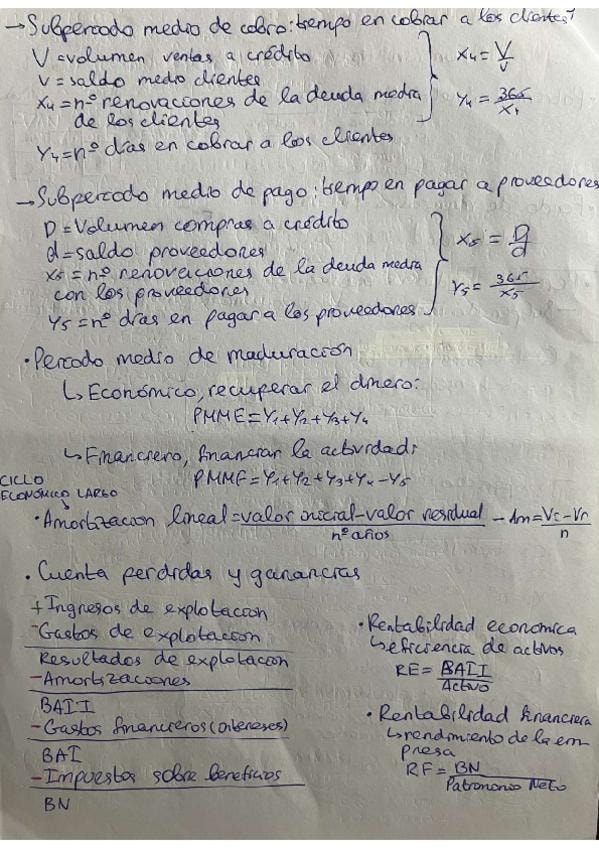 →Subperiodo medio de cobro: tiempo en cobrar a los clientes
V = volumen ventas a crédito
v = saldo medio clientes
X4 = nº renovaciones de la deuda media
de los clientes
Y4 = nº días en cobrar a los clientes
X4 = V/v
Y4 = 365/X4
→Subperiodo medio de pago: tiempo en pagar a proveedores
D = Volumen compras a crédito
d = saldo proveedores
X5 = nº renovaciones de la deuda media
con los proveedores
Y5 = nº días en pagar a los proveedores
X5 = D/d
Y5 = 365/X5
· Periodo medio de maduración
↳ Económico, recuperar el dinero:
PMME = Y1+Y2+Y3+Y4
↳ Financiero, financiar la actividad:
PMMF = Y1+Y2+Y3+Y4-Y5
CICLO
ECONÓMICO LARGO
· Amortizacion lineal = valor inicial - valor residual / nº años - Am = Vi - Vr / n
· Cuenta perdidas y ganancias
+ Ingresos de explotacion
- Gastos de explotacion
Resultados de explotacion
- Amortizaciones
BAII
- Gastos financieros (intereses)
BAI
- Impuestos sobre beneficios
BN
· Rentabilidad economica
↳ eficiencia de activos
RE = BAII / Activo
· Rentabilidad financiera
↳ rendimiento de la em
presa
RF = BN / Patrimonio Neto